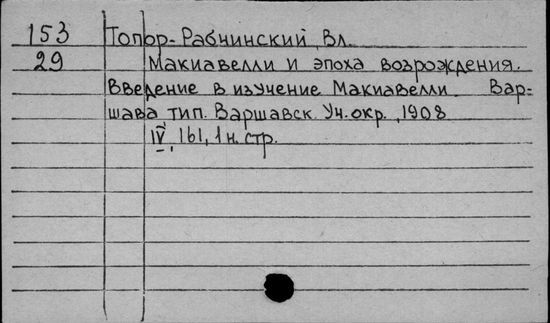 153 Топор-Рабчинский, Вл.
29 Макиавелли и эпоха возрождения.
Введение в изучение Макиавелли. Вар-
шава тип. Варшавск. Уч. окр., 1908
IV, 161, 1 н. стр.